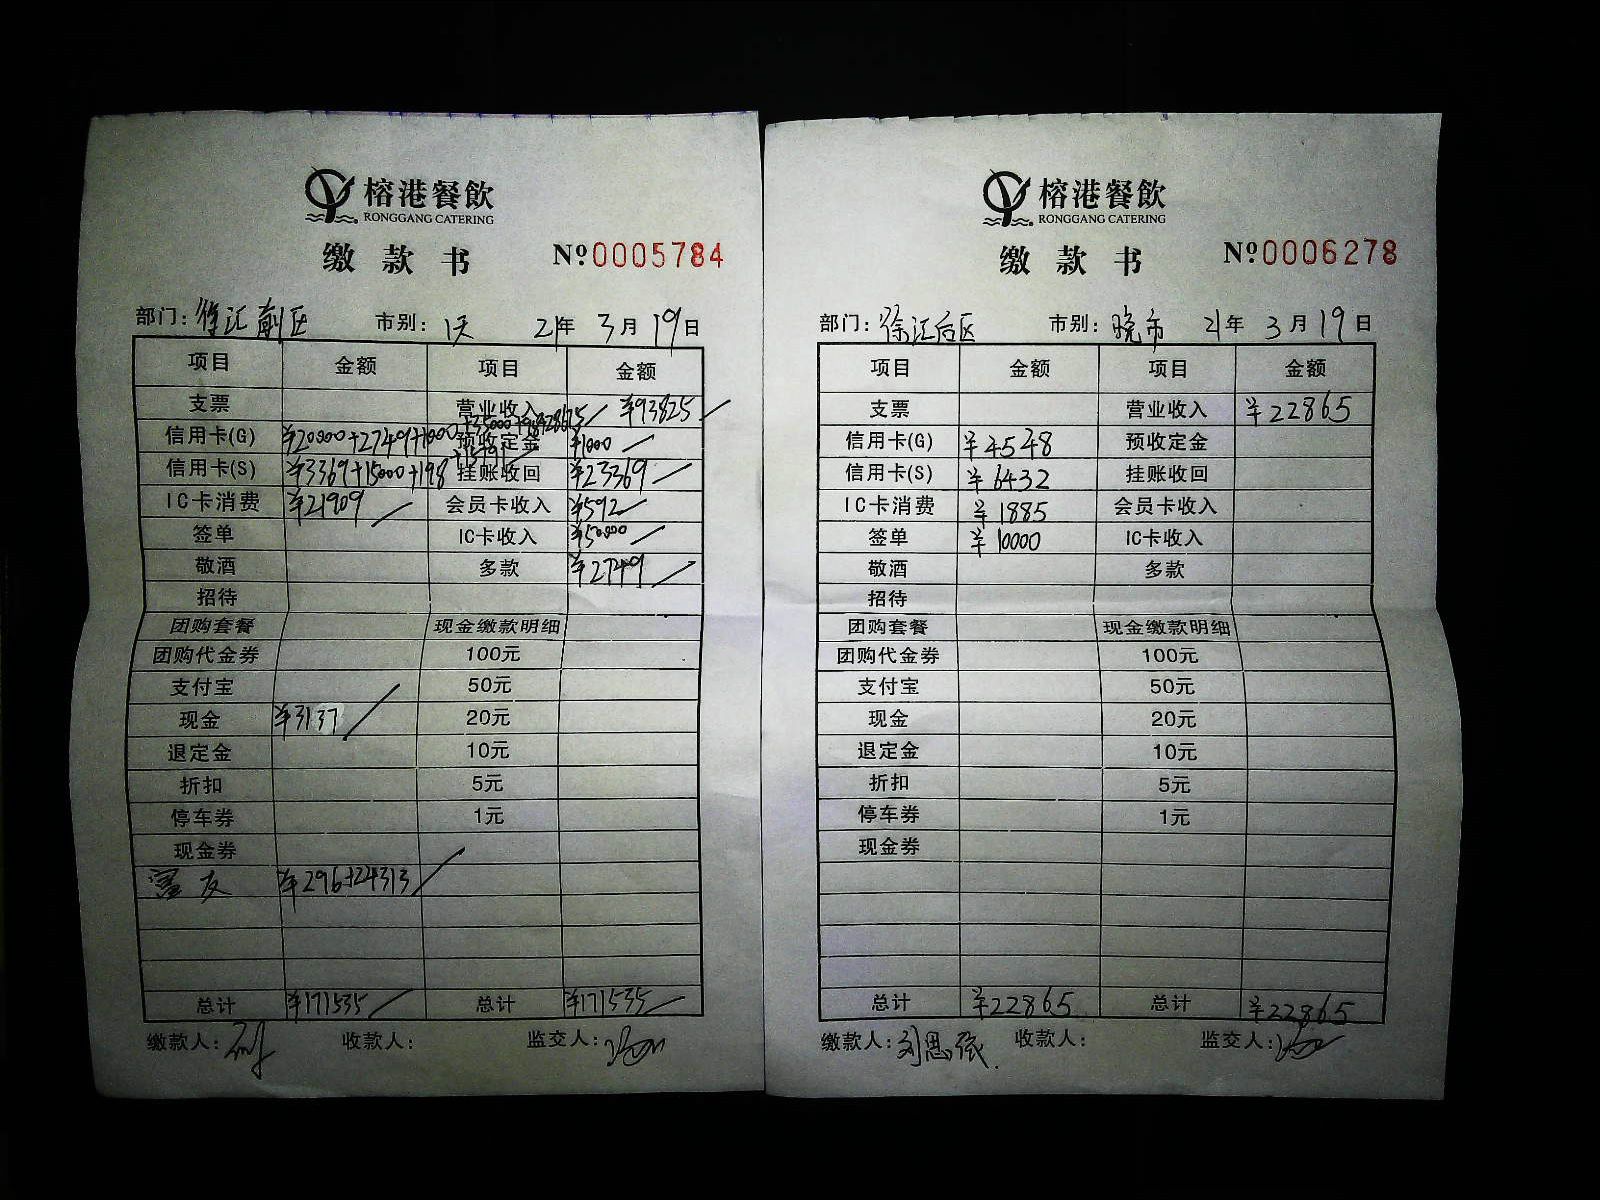 榕港餐飲
RONGGANG CATERING
缴款书 №0005784
部门: 徐汇前区 市别: 1天 21年 3月 19日
项目 金额 项目 金额
支票 营业收入 ¥93825
信用卡(G) ¥20000+2749+1000 预收定金 ¥1000
信用卡(S) ¥3369+15000+198 挂账收回 ¥23369
IC卡消费 ¥21909 会员卡收入 ¥592
签单 IC卡收入 ¥50000
敬酒 多款 ¥2749
招待
团购套餐 现金缴款明细
团购代金券 100元
支付宝 50元
现金 ¥3137 20元
退定金 10元
折扣 5元
停车券 1元
现金券
富友 ¥296+24313
总计 ¥171535 总计 ¥171535
缴款人: 收款人: 监交人:
榕港餐飲
RONGGANG CATERING
缴款书 №0006278
部门: 徐汇后区 市别: 晚市 21年 3月 19日
项目 金额 项目 金额
支票 营业收入 ¥22865
信用卡(G) ¥4548 预收定金
信用卡(S) ¥6432 挂账收回
IC卡消费 ¥1885 会员卡收入
签单 ¥10000 IC卡收入
敬酒 多款
招待
团购套餐 现金缴款明细
团购代金券 100元
支付宝 50元
现金 20元
退定金 10元
折扣 5元
停车券 1元
现金券
总计 ¥22865 总计 ¥22865
缴款人: 刘思 收款人: 监交人: